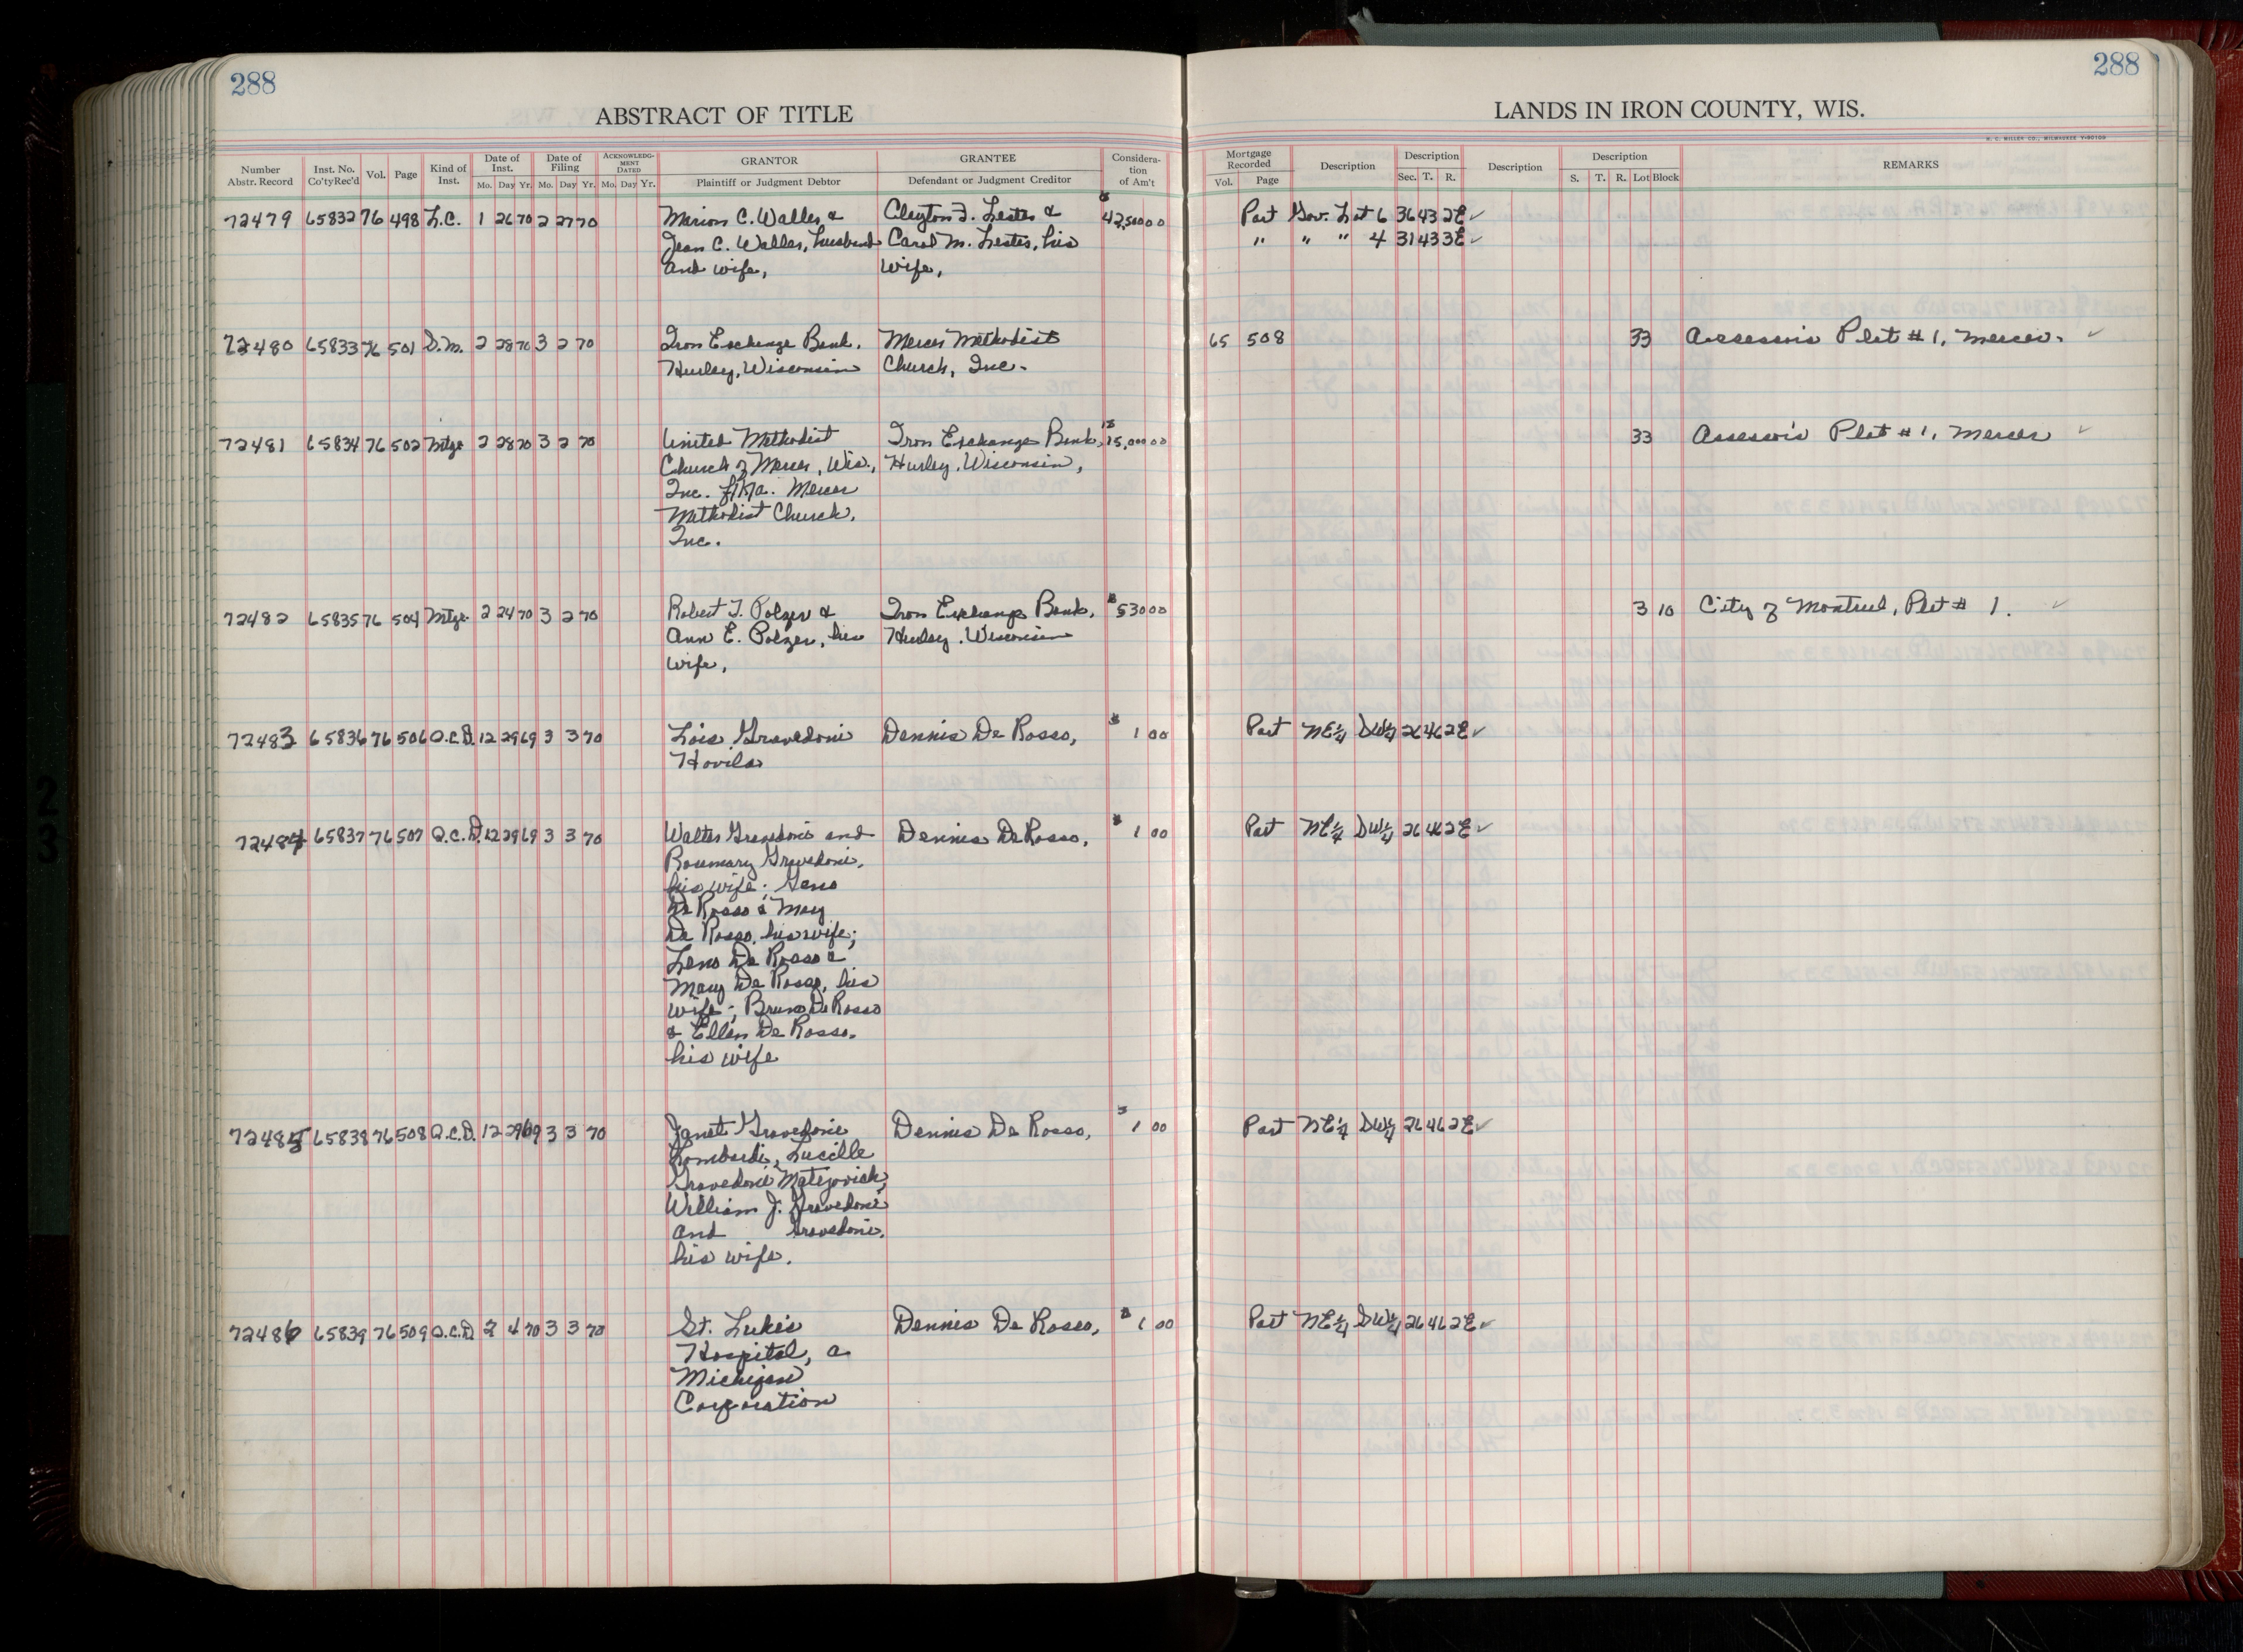 288
288
ABSTRACT OF TITLE
LANDS IN IRON COUNTY, WIS.
H. C. MILLER CO., MILWAUKEE
Number Abstr. Record Inst. No. Co'ty Rec'd Vol. Page Kind of Inst. Date of Inst. Mo. Day Yr. Date of Filing Mo. Day Yr. ACKNOWLEDGMENT DATED Mo. Day Yr. GRANTOR Plaintiff or Judgment Debtor GRANTEE Defendant or Judgment Creditor Consideration of Am't
Mortgage Recorded Vol. Page Description Description Sec. T. R. Description Description S. T. R. Lot Block REMARKS
72479 65832 76 498 L.C. 1 26 70 2 27 70 Marion C. Waller & Clayton F. Lester & $42,500 00 Part Gov. Lot 6 36 43 2E ✓
Jean C. Waller, husband Carol M. Lester, his " " " 4 31 43 3E ✓
and wife, wife,
72480 65833 76 501 D.M. 2 28 70 3 2 70 Iron Exchange Bank, Mercer Methodist 65 508 33 Assessor's Plat #1, Mercer. ✓
Hurley, Wisconsin Church, Inc.
72481 65834 76 502 Mtge 2 28 70 3 2 70 United Methodist Iron Exchange Bank, $15,000 00 33 Assessor's Plat #1, Mercer ✓
Church of Mercer, Wis., Hurley, Wisconsin,
Inc. f/k/a. Mercer
Methodist Church,
Inc.
72482 65835 76 504 Mtge. 2 24 70 3 2 70 Robert T. Polzer & Iron Exchange Bank, $530 00 3 10 City of Montreal, Plat # 1. ✓
Ann E. Polzer, his Hurley, Wisconsin
wife,
72483 65836 76 506 Q.C.D. 12 29 69 3 3 70 Lois Gravedoni Dennis De Rosso, $1 00 Part NE¼ SW¼ 26 46 2E ✓
Hovila
72484 65837 76 507 Q.C.D. 12 29 69 3 3 70 Walter Gravedoni and Dennis De Rosso, $1 00 Part NE¼ SW¼ 26 46 2E ✓
Rosemary Gravedoni,
his wife; Geno
De Rosso & May
De Rosso, his wife;
Leno De Rosso &
Mary De Rosso, his
wife; Bruno De Rosso
& Ellen De Rosso,
his wife
72485 65838 76 508 Q.C.D. 12 29 69 3 3 70 Janet Gravedoni Dennis De Rosso, $1 00 Part NE¼ SW¼ 26 46 2E ✓
Lombardi, Lucille
Gravedoni Matejovich,
William J. Gravedoni
and Gravedoni,
his wife.
72486 65839 76 509 Q.C.D. 2 4 70 3 3 70 St. Luke's Dennis De Rosso, $1 00 Part NE¼ SW¼ 26 46 2E ✓
Hospital, a
Michigan
Corporation